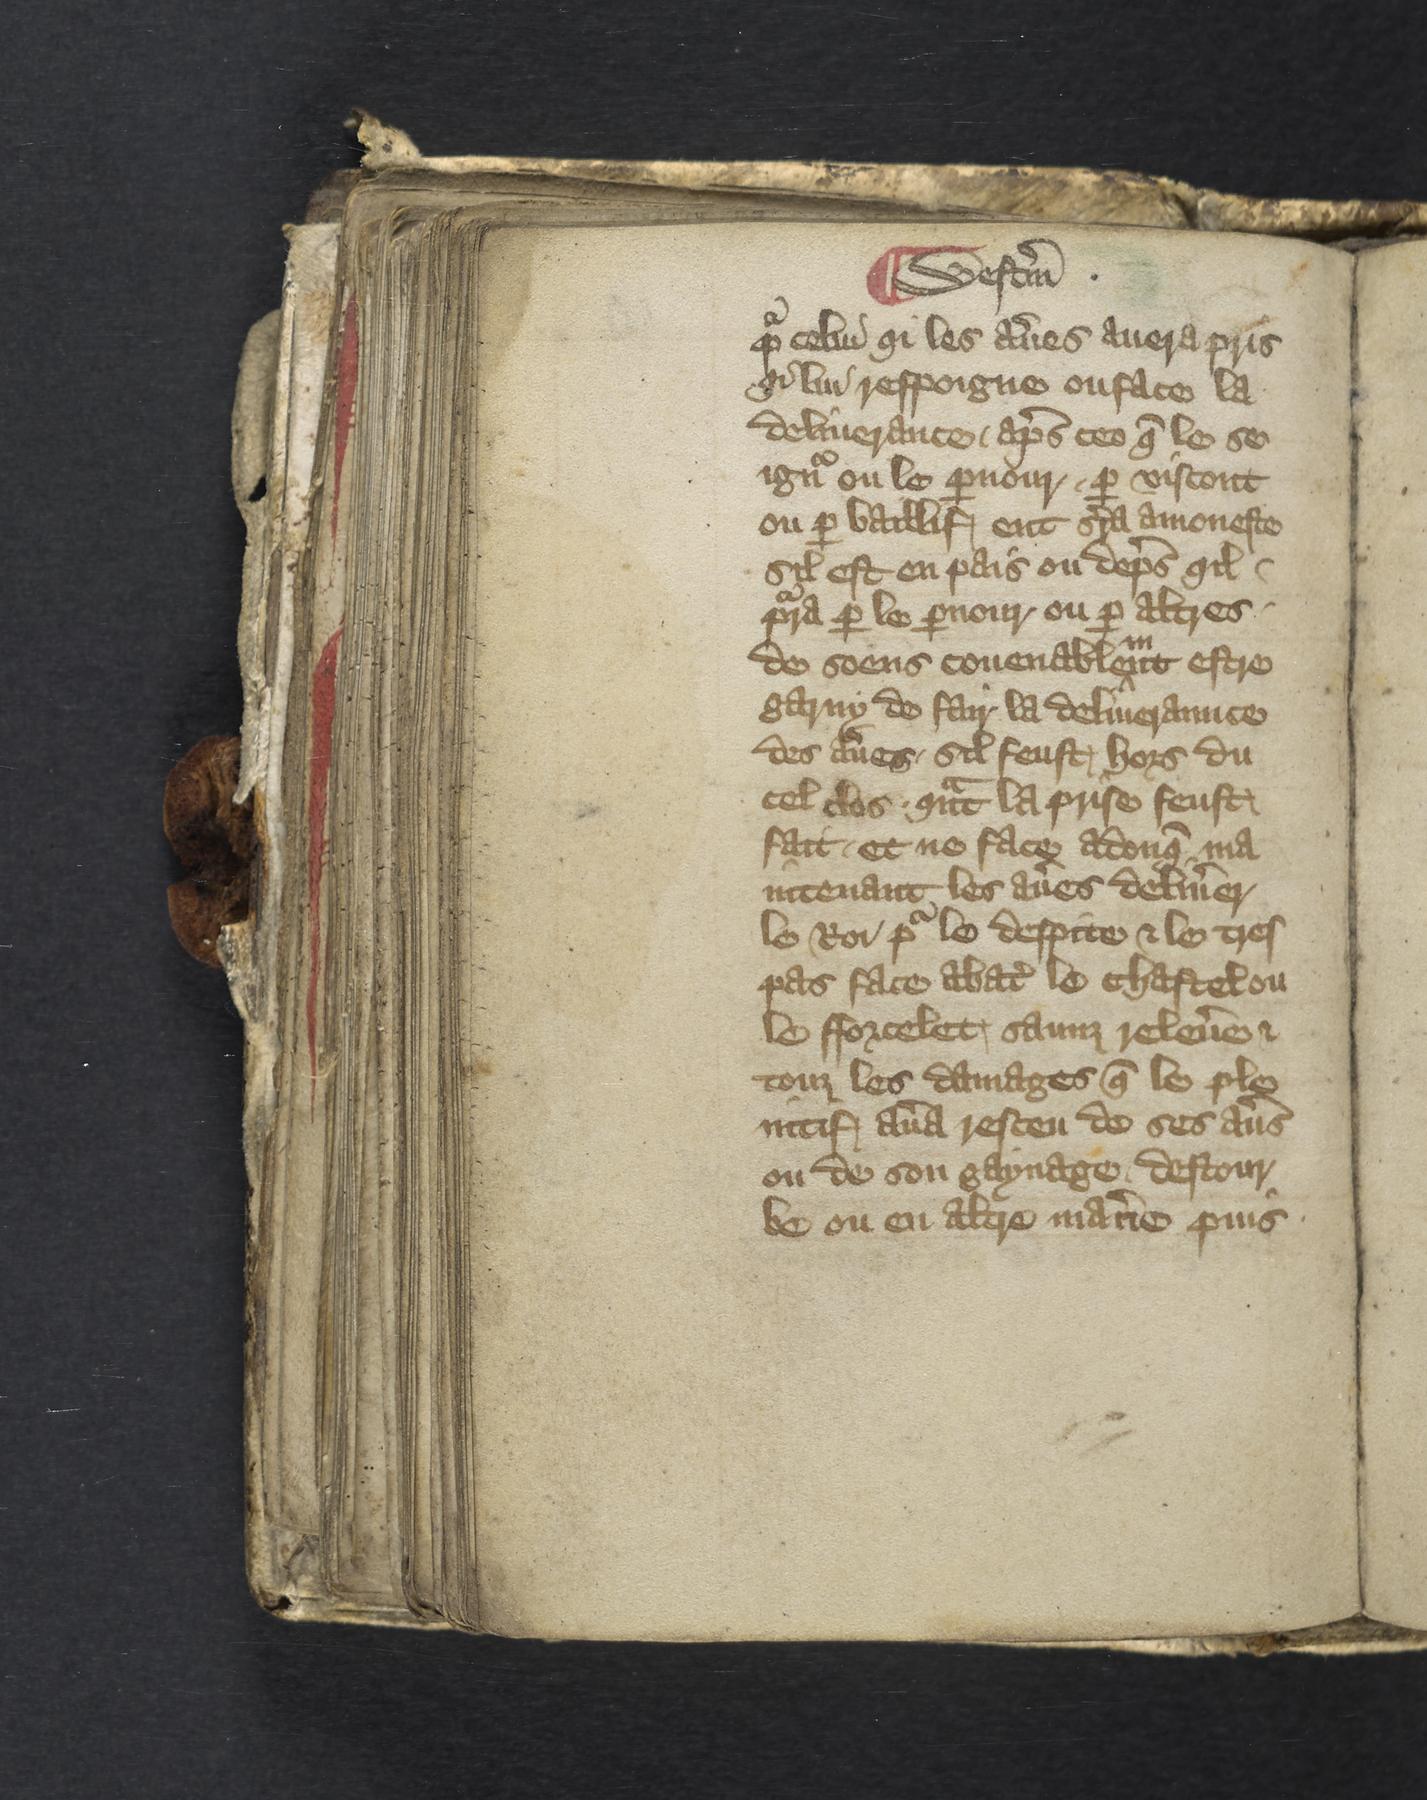 ¶ Westm̃ .
pͣ celui qi les au̾es auera pris
qi lui respoigne ou face la
deliuerance . ap̃s ceo q̃ le se
ign̾ ou le p̱nour . p̱ viscont
ou p̱ baillif ent s̾ra amoneste
sil est en pais ou dep̃s qil
pͣra p̱ le p̱nour ou p̱ altres .
de soens couenablemnt estre
garny de fair la deliueraunce
des au̾es . sil feust hors du
cel clos . qͣnt la prise feust
fait . et ne face adonq̃ ma
intenant les au̾es deliu̾er
le Roi pͣ le despite ⁊ le tres
pas face abat̾ le chastel ou
le fforcelet saunz releu̾e ⁊
touz les damages q̃ le ple
intif au̾a resceu de ses au̾s
ou de son gaynage . destour
be ou en altre mat̾ie puis .